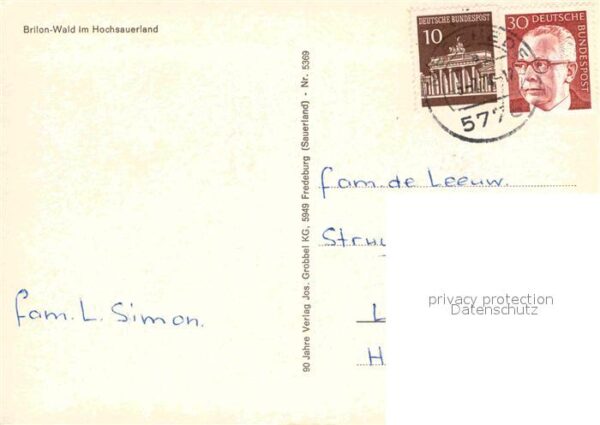 Brilon-Wald im Hochsauerland
90 Jahre Verlag Jos. Grobbel KG, 5949 Fredeburg (Sauerland) - Nr. 5369
DEUTSCHE BUNDESPOST
10
30 DEUTSCHE
BUNDESPOST
577
fam. de Leeuw.
fam. L. Simon.
privacy protection
Datenschutz